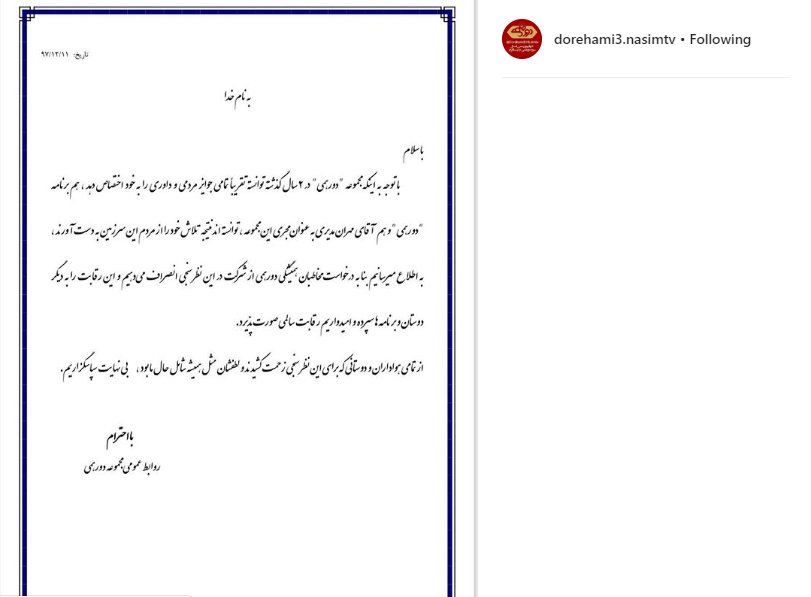 تاریخ: ۹۷/۱۲/۱۱
به نام خدا
با سلام
با توجه به اینکه مجموعه "دورهمی" در ۲ سال گذشته توانسته تقریباً تمامی جوایز مردمی و داوری را به خود اختصاص دهد ، هم برنامه
"دورهمی" و هم آقای مهران مدیری به عنوان مجری این مجموعه ، توانسته اند نتیجه تلاش خود را از مردم این سرزمین به دست آورند ،
به اطلاع میرسانیم بنا به درخواست مخاطبان همیشگی دورهمی از شرکت در این نظرسنجی انصراف می‌دهیم و این رقابت را به دیگر
دوستان و برنامه ها سپرده و امیدواریم رقابت سالمی صورت پذیرد.
از تمامی هواداران و دوستانی که برای این نظرسنجی زحمت کشیدند و لطفشان مثل همیشه شامل حال ما بود ، بی نهایت سپاسگزاریم.
با احترام
روابط عمومی مجموعه دورهمی
dorehami3.nasimtv • Following